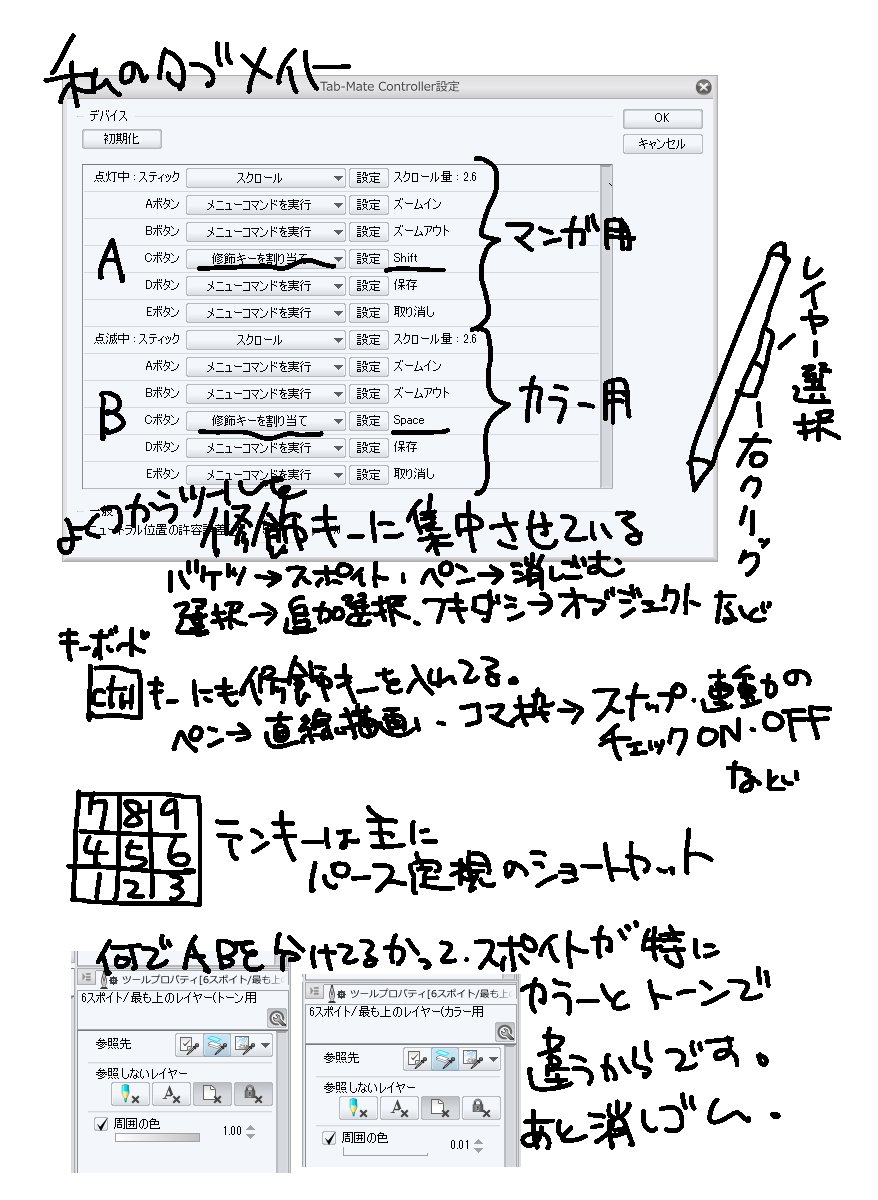 私のタブメイト
Tab-Mate Controller設定
デバイス
初期化
OK
キャンセル
点灯中：スティック スクロール 設定 スクロール量：2.6
Aボタン メニューコマンドを実行 設定 ズームイン
Bボタン メニューコマンドを実行 設定 ズームアウト
A
Cボタン 修飾キーを割り当て 設定 Shift
Dボタン メニューコマンドを実行 設定 保存
Eボタン メニューコマンドを実行 設定 取り消し
マンガ用
点滅中：スティック スクロール 設定 スクロール量：2.6
Aボタン メニューコマンドを実行 設定 ズームイン
Bボタン メニューコマンドを実行 設定 ズームアウト
B
Cボタン 修飾キーを割り当て 設定 Space
Dボタン メニューコマンドを実行 設定 保存
Eボタン メニューコマンドを実行 設定 取り消し
カラー用
レイヤー選択
右クリック
一般
ニュートラル位置の許容誤差
よくつかうツールを
修飾キーに集中させている
バケツ→スポイト、ペン→消しごむ
選択→追加選択、フキダシ→オブジェクトなど
キーボード
ctrlキーにも修飾キーを入れてる。
ペン→直線描画、コマ枠→スナップ・連動の
チェックON・OFF
など
7 8 9
4 5 6
1 2 3
テンキーは主に
パース定規のショートカット
何でABを分けてるかって、スポイトが特に
カラーとトーンで
違うからです。
あと消しゴム．
ツールプロパティ[6スポイト/最も上の
6スポイト/最も上のレイヤー(トーン用
参照先
参照しないレイヤー
周囲の色 1.00
ツールプロパティ[6スポイト/最も上
6スポイト/最も上のレイヤー(カラー用
参照先
参照しないレイヤー
周囲の色 0.01